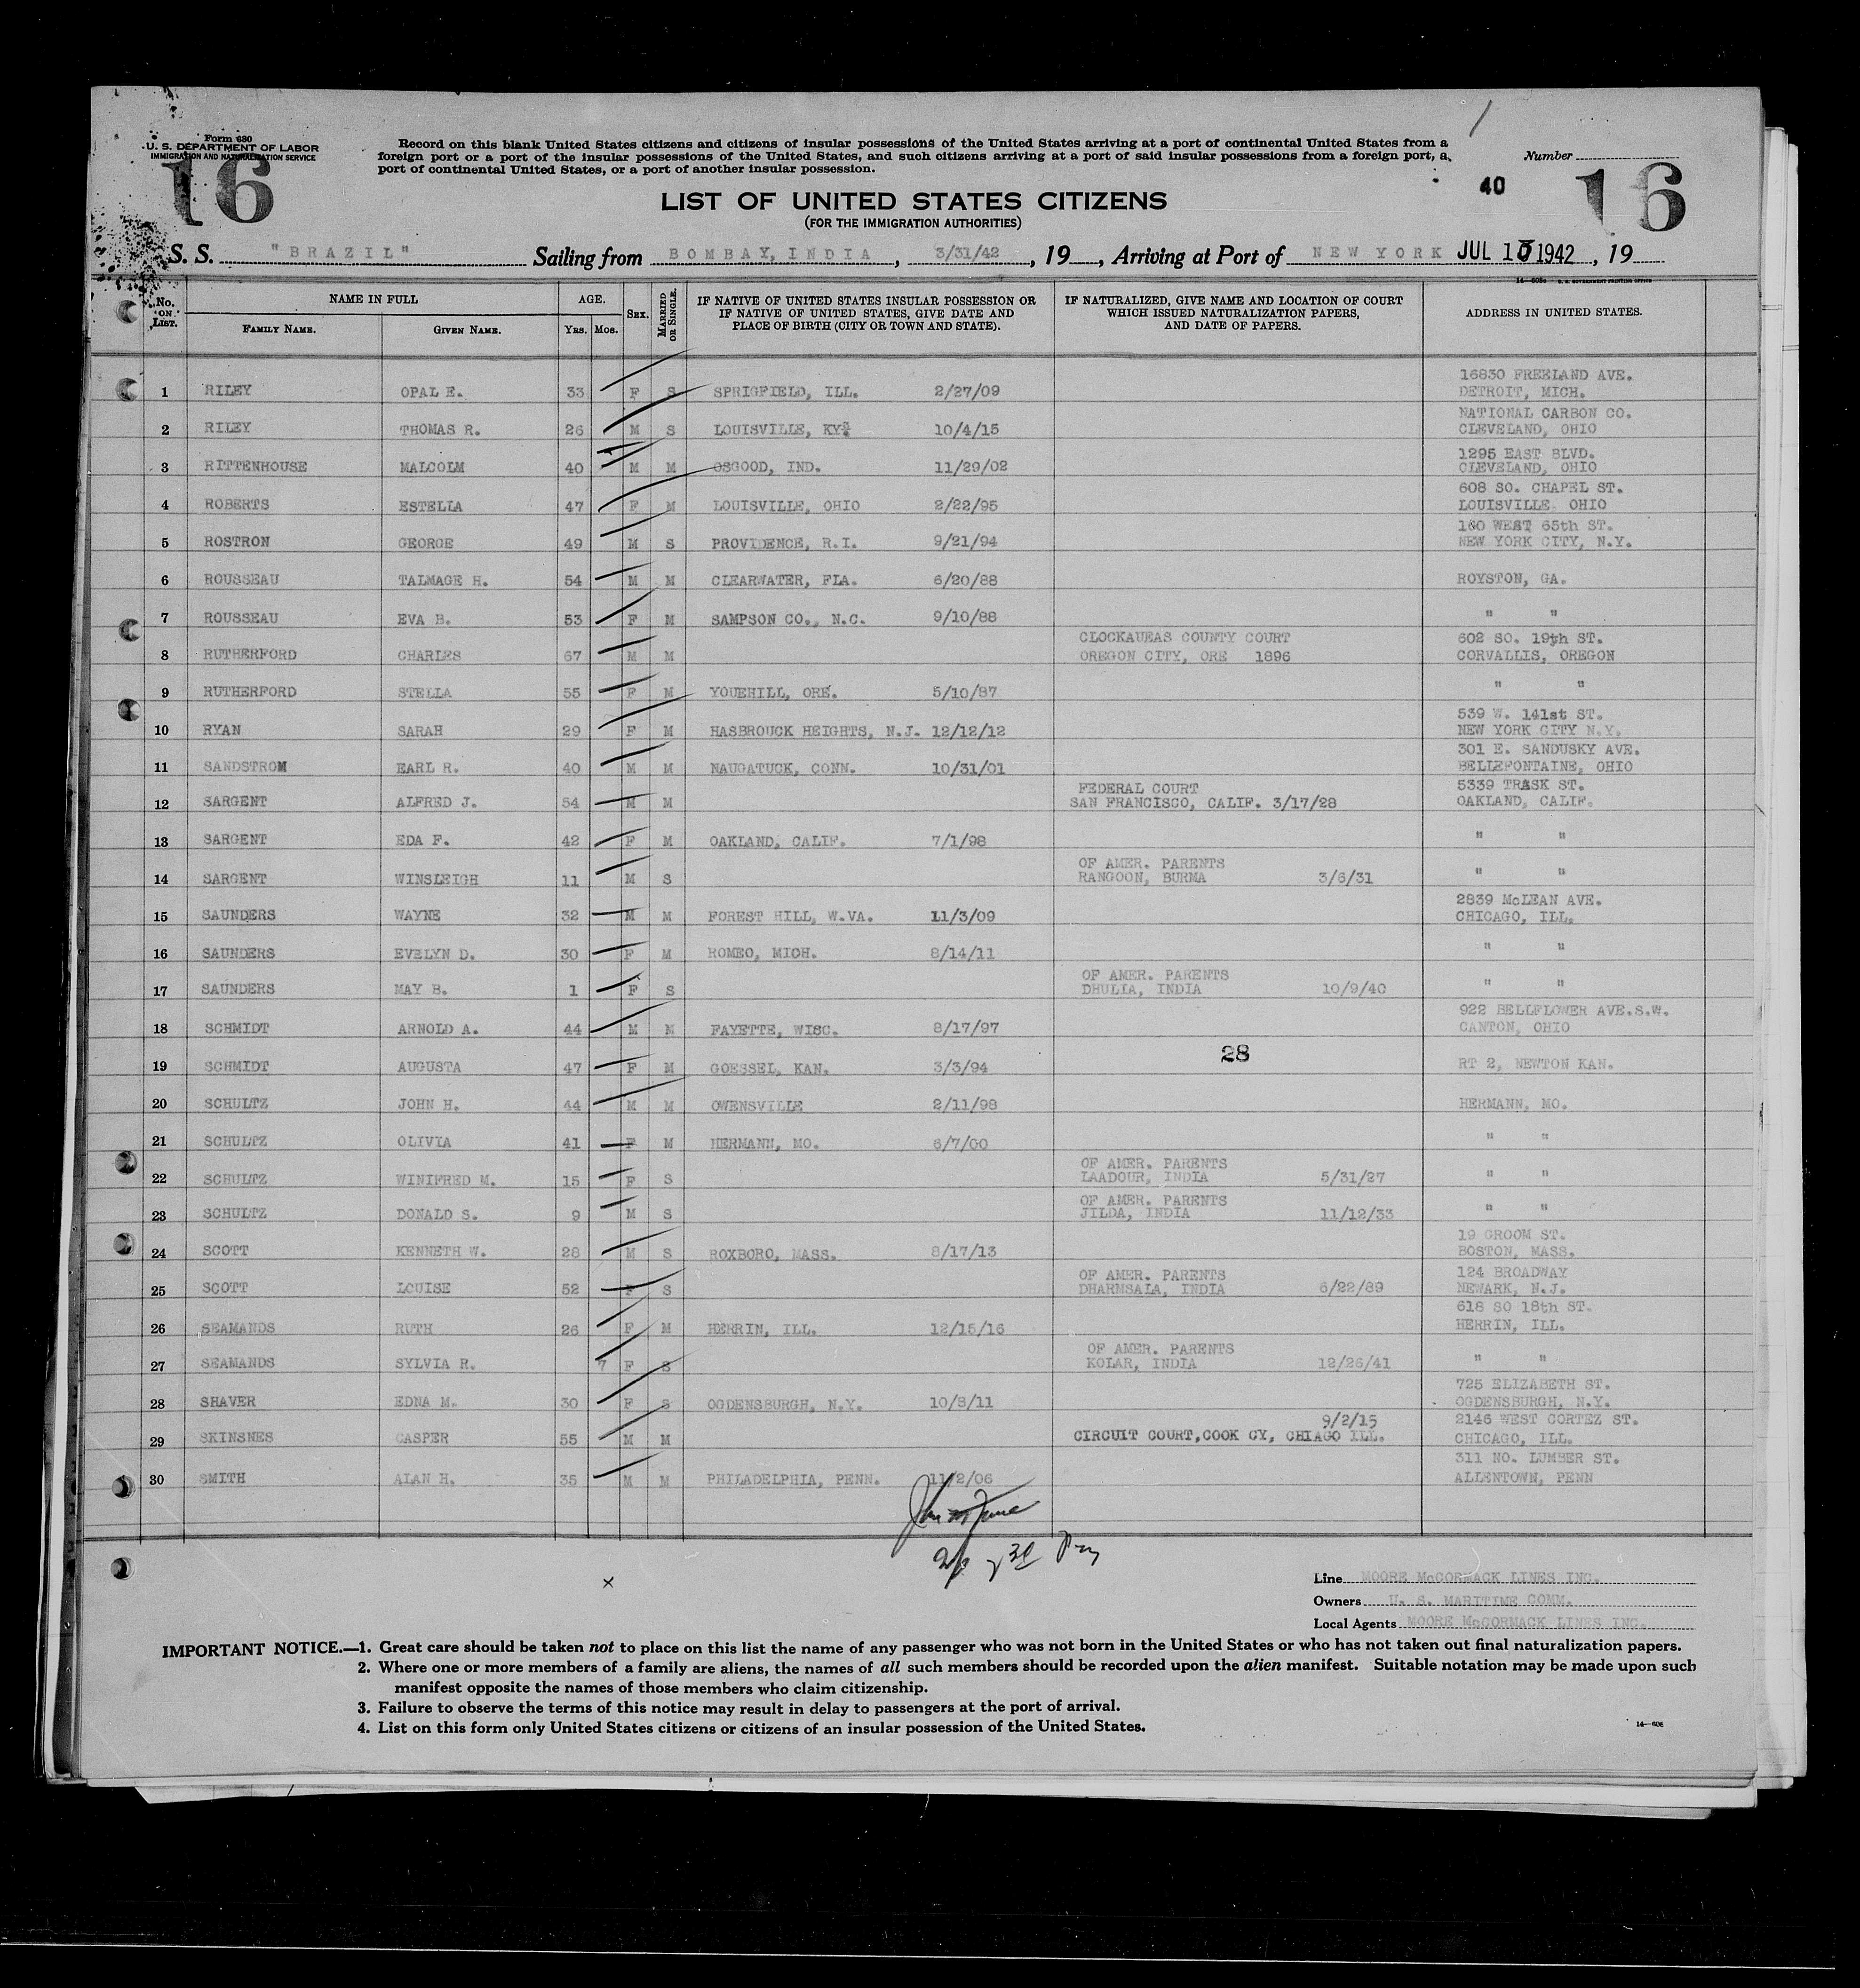 Form 630
U. S. DEPARTMENT OF LABOR
IMMIGRATION AND NATURALIZATION SERVICE
16
Record on this blank United States citizens and citizens of insular possessions of the United States arriving at a port of continental United States from a
foreign port or a port of the insular possessions of the United States, and such citizens arriving at a port of said insular possessions from a foreign port, a
port of continental United States, or a port of another insular possession.
Number
40
16
LIST OF UNITED STATES CITIZENS
(FOR THE IMMIGRATION AUTHORITIES)
S. S. "BRAZIL" Sailing from BOMBAY, INDIA, 3/31/42, 19, Arriving at Port of NEW YORK JUL 1 1942, 19
No. ON LIST. NAME IN FULL AGE. SEX. MARRIED OR SINGLE. IF NATIVE OF UNITED STATES INSULAR POSSESSION OR IF NATIVE OF UNITED STATES, GIVE DATE AND PLACE OF BIRTH (CITY OR TOWN AND STATE). IF NATURALIZED, GIVE NAME AND LOCATION OF COURT WHICH ISSUED NATURALIZATION PAPERS, AND DATE OF PAPERS. ADDRESS IN UNITED STATES.
FAMILY NAME. GIVEN NAME. YRS. MOS.
16830 FREELAND AVE.
1 RILEY OPAL E. 33 F S SPRIGFIELD, ILL. 2/27/09 DETROIT, MICH.
NATIONAL CARBON CO.
2 RILEY THOMAS R. 26 M S LOUISVILLE, KY 10/4/15 CLEVELAND, OHIO
1295 EAST BLVD.
3 RITTENHOUSE MALCOLM 40 M M OSGOOD, IND. 11/29/02 CLEVELAND, OHIO
608 SO. CHAPEL ST.
4 ROBERTS ESTELLA 47 F M LOUISVILLE, OHIO 2/22/95 LOUISVILLE OHIO
160 WEST 65th ST.
5 ROSTRON GEORGE 49 M S PROVIDENCE, R.I. 9/21/94 NEW YORK CITY, N.Y.
6 ROUSSEAU TALMAGE H. 54 M M CLEARWATER, FLA. 6/20/88 ROYSTON, GA.
7 ROUSSEAU EVA B. 53 F M SAMPSON CO., N.C. 9/10/88 " "
CLOCKAUEAS COUNTY COURT 602 SO. 19th ST.
8 RUTHERFORD CHARLES 67 M M OREGON CITY, ORE 1896 CORVALLIS, OREGON
9 RUTHERFORD STELLA 55 F M YOUEHILL, ORE. 5/10/87 " "
539 W. 141st ST.
10 RYAN SARAH 29 F M HASBROUCK HEIGHTS, N.J. 12/12/12 NEW YORK CITY N.Y.
301 E. SANDUSKY AVE.
11 SANDSTROM EARL R. 40 M M NAUGATUCK, CONN. 10/31/01 BELLEFONTAINE, OHIO
FEDERAL COURT 5339 TRASK ST.
12 SARGENT ALFRED J. 54 M M SAN FRANCISCO, CALIF. 3/17/28 OAKLAND, CALIF.
13 SARGENT EDA F. 42 F M OAKLAND, CALIF. 7/1/98 " "
OF AMER. PARENTS
14 SARGENT WINSLEIGH 11 M S RANGOON, BURMA 3/6/31 " "
2839 McLEAN AVE.
15 SAUNDERS WAYNE 32 M M FOREST HILL, W.VA. 11/3/09 CHICAGO, ILL.
16 SAUNDERS EVELYN D. 30 F M ROMEO, MICH. 8/14/11 " "
OF AMER. PARENTS
17 SAUNDERS MAY B. 1 F S DHULIA, INDIA 10/9/40 " "
922 BELLFLOWER AVE.S.W.
18 SCHMIDT ARNOLD A. 44 M M FAYETTE, WISC. 8/17/97 CANTON, OHIO
28
19 SCHMIDT AUGUSTA 47 F M GOESSEL, KAN. 3/3/94 RT 2, NEWTON KAN.
20 SCHULTZ JOHN H. 44 M M OWENSVILLE 2/11/98 HERMANN, MO.
21 SCHULTZ OLIVIA 41 F M HERMANN, MO. 6/7/00 " "
OF AMER. PARENTS
22 SCHULTZ WINIFRED M. 15 F S LAADOUR, INDIA 5/31/27 " "
OF AMER. PARENTS
23 SCHULTZ DONALD S. 9 M S JILDA, INDIA 11/12/33 " "
19 GROOM ST.
24 SCOTT KENNETH W. 28 M S ROXBORO, MASS. 8/17/13 BOSTON, MASS.
OF AMER. PARENTS 124 BROADWAY
25 SCOTT LOUISE 52 F S DHARMSALA, INDIA 6/22/89 NEWARK, N.J.
618 SO 18th ST.
26 SEAMANDS RUTH 26 F M HERRIN, ILL. 12/15/16 HERRIN, ILL.
OF AMER. PARENTS
27 SEAMANDS SYLVIA R. 7 F S KOLAR, INDIA 12/26/41 " "
725 ELIZABETH ST.
28 SHAVER EDNA M. 30 F S OGDENSBURGH, N.Y. 10/8/11 OGDENSBURGH, N.Y.
9/2/15 2146 WEST CORTEZ ST.
29 SKINSNES CASPER 55 M M CIRCUIT COURT,COOK CY, CHIAGO ILL. CHICAGO, ILL.
311 NO. LUMBER ST.
30 SMITH ALAN H. 35 M M PHILADELPHIA, PENN. 11/2/06 ALLENTOWN, PENN
Line MOORE McCORMACK LINES INC.
Owners U. S. MARITIME COMM.
Local Agents MOORE McCORMACK LINES INC.
IMPORTANT NOTICE.—1. Great care should be taken not to place on this list the name of any passenger who was not born in the United States or who has not taken out final naturalization papers.
2. Where one or more members of a family are aliens, the names of all such members should be recorded upon the alien manifest. Suitable notation may be made upon such
manifest opposite the names of those members who claim citizenship.
3. Failure to observe the terms of this notice may result in delay to passengers at the port of arrival.
4. List on this form only United States citizens or citizens of an insular possession of the United States.